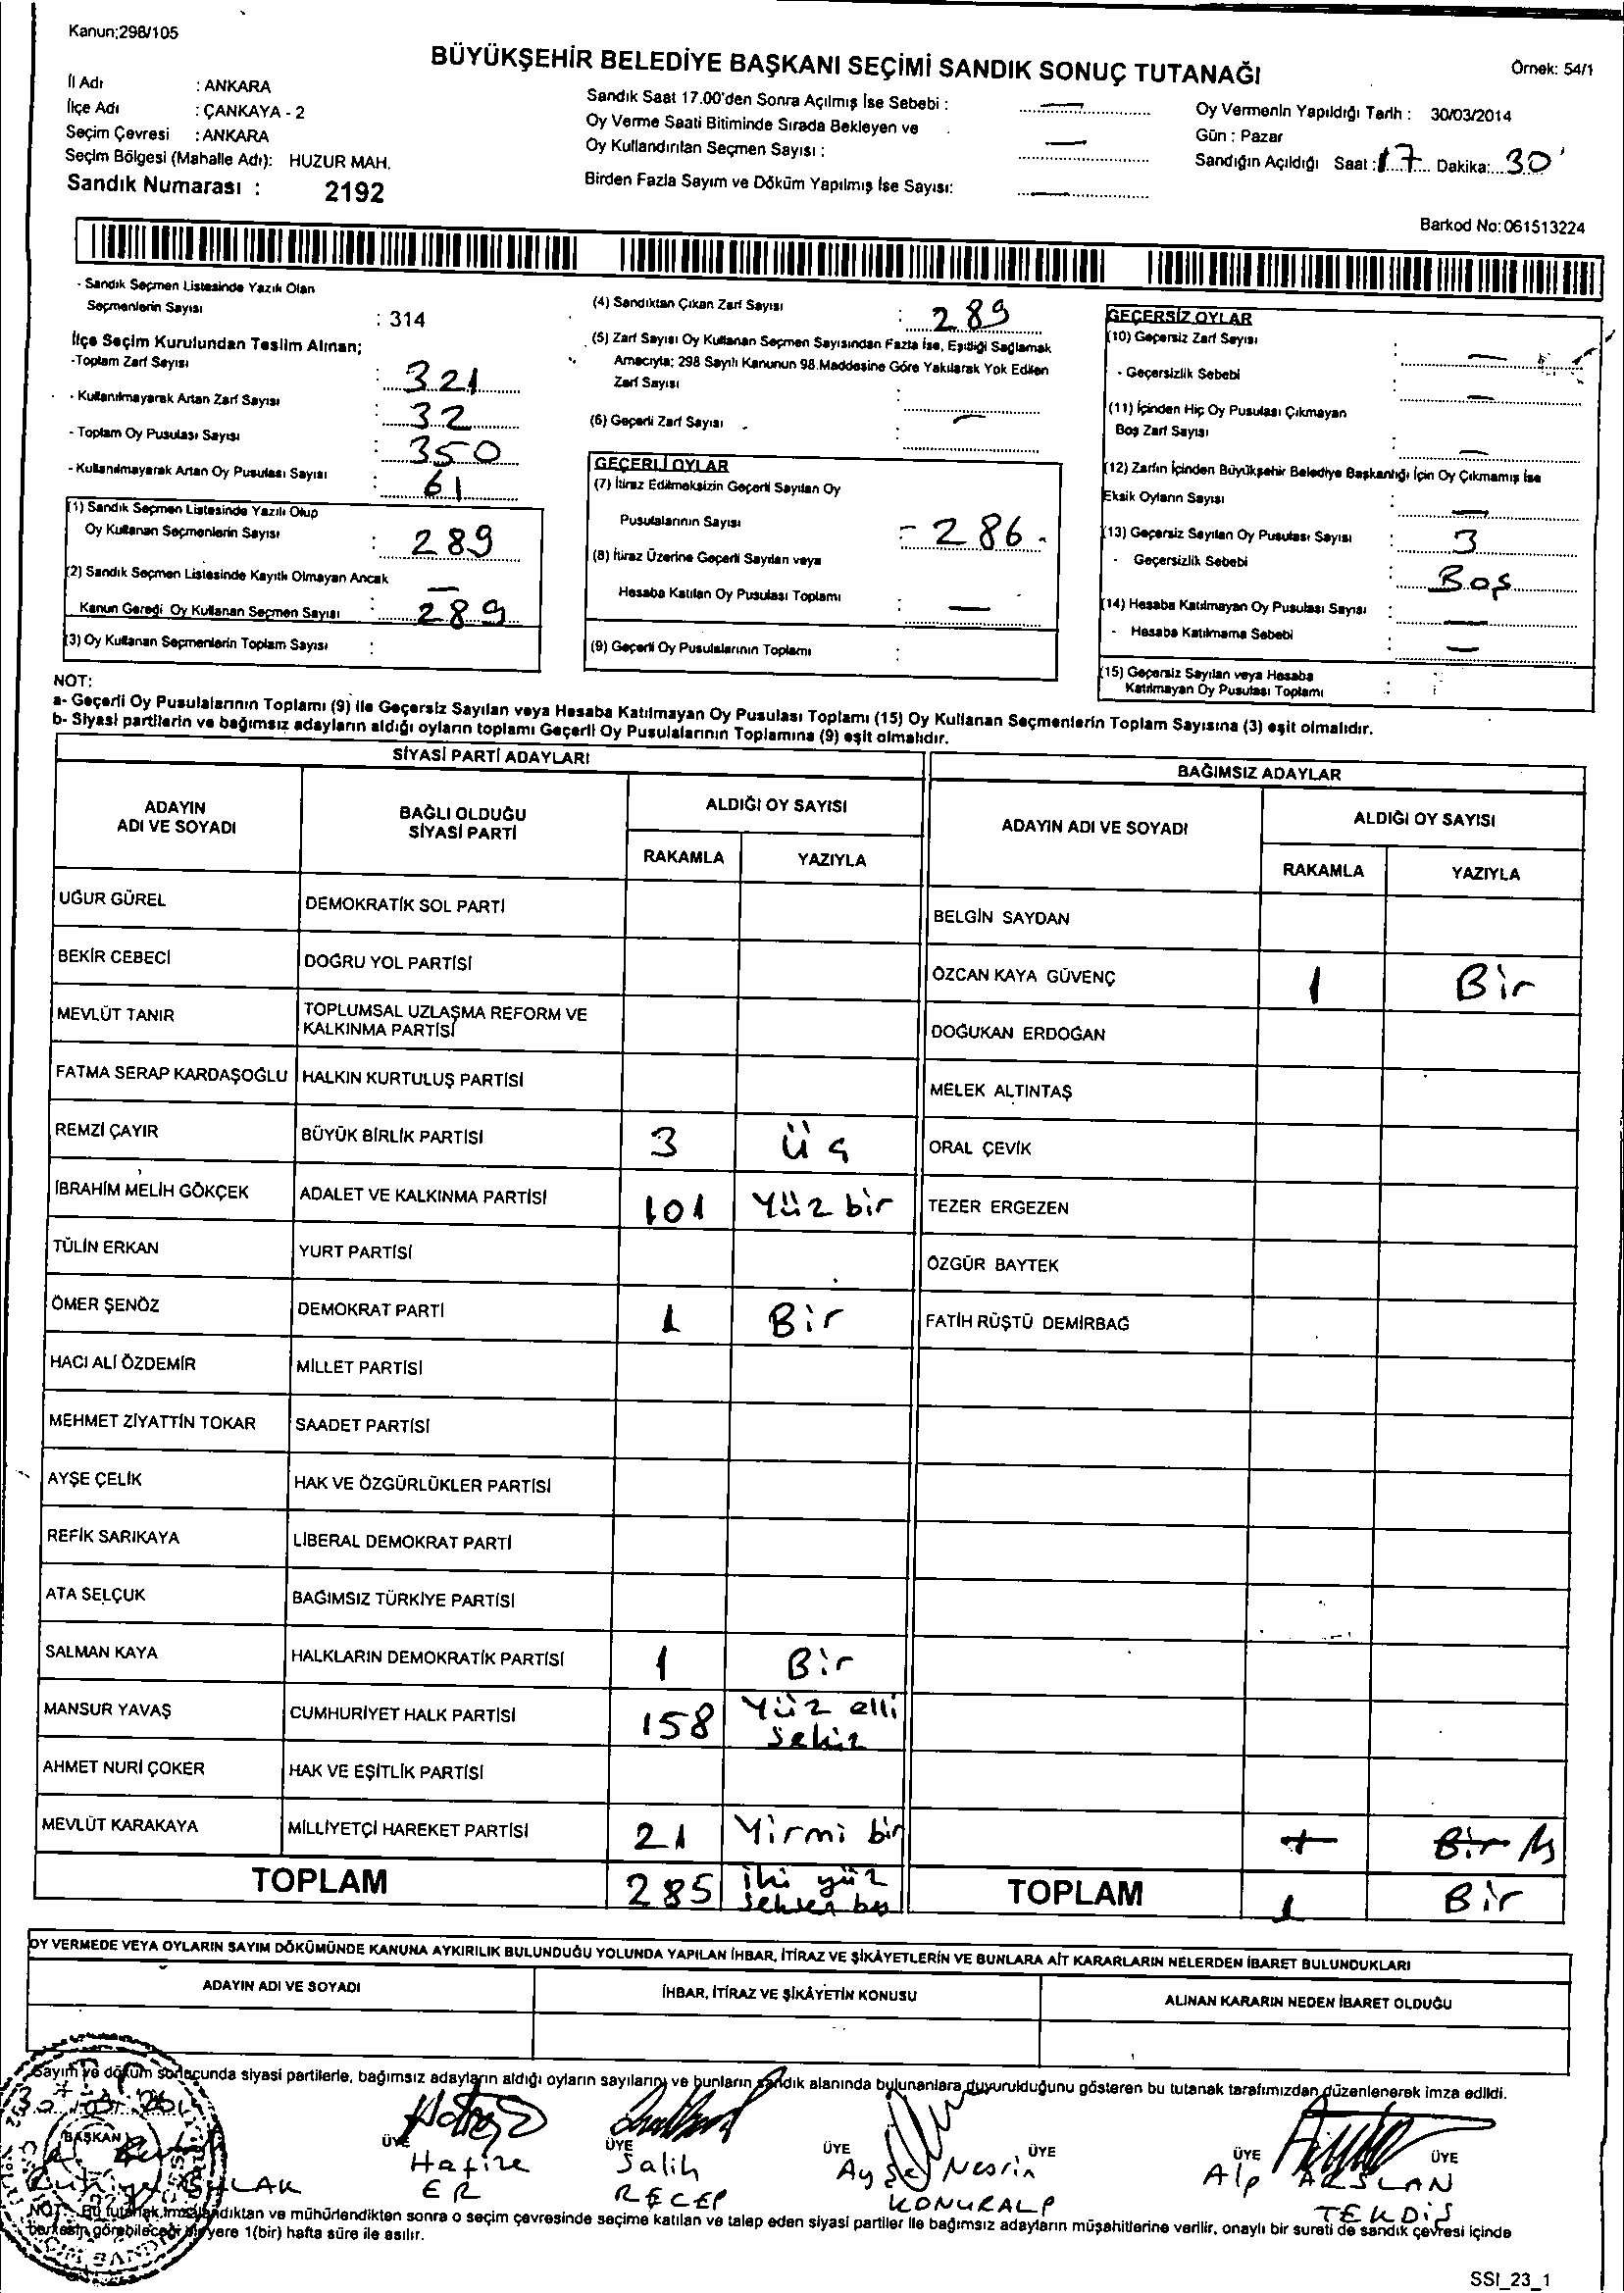 Kanun;298/105
BÜYÜKŞEHİR BELEDİYE BAŞKANI SEÇİMİ SANDIK SONUÇ TUTANAĞI
Örnek: 54/1
İl Adı : ANKARA
İlçe Adı : ÇANKAYA - 2
Seçim Çevresi : ANKARA
Seçim Bölgesi (Mahalle Adı): HUZUR MAH.
Sandık Numarası : 2192
Sandık Saat 17.00'den Sonra Açılmış İse Sebebi : —
Oy Verme Saati Bitiminde Sırada Bekleyen ve
Oy Kullandırılan Seçmen Sayısı : —
Birden Fazla Sayım ve Döküm Yapılmış İse Sayısı: —
Oy Vermenin Yapıldığı Tarih : 30/03/2014
Gün : Pazar
Sandığın Açıldığı Saat : 17 Dakika: 30'
Barkod No: 061513224
- Sandık Seçmen Listesinde Yazılı Olan
Seçmenlerin Sayısı : 314
İlçe Seçim Kurulundan Teslim Alınan;
-Toplam Zarf Sayısı : 321
- Kullanılmayarak Artan Zarf Sayısı : 32
- Toplam Oy Pusulası Sayısı : 350
- Kullanılmayarak Artan Oy Pusulası Sayısı : 61
(1) Sandık Seçmen Listesinde Yazılı Olup
Oy Kullanan Seçmenlerin Sayısı : 289
(2) Sandık Seçmen Listesinde Kayıtlı Olmayan Ancak
Kanun Gereği Oy Kullanan Seçmen Sayısı : —
289
(3) Oy Kullanan Seçmenlerin Toplam Sayısı :
(4) Sandıktan Çıkan Zarf Sayısı : 289
(5) Zarf Sayısı Oy Kullanan Seçmen Sayısından Fazla İse, Eşitliği Sağlamak
Amacıyla; 298 Sayılı Kanunun 98.Maddesine Göre Yakılarak Yok Edilen
Zarf Sayısı :
(6) Geçerli Zarf Sayısı : —
GEÇERLİ OYLAR
(7) İtiraz Edilmeksizin Geçerli Sayılan Oy
Pusulalarının Sayısı : - 286 -
(8) İtiraz Üzerine Geçerli Sayılan veya
Hesaba Katılan Oy Pusulası Toplamı : —
(9) Geçerli Oy Pusulalarının Toplamı :
GEÇERSİZ OYLAR
(10) Geçersiz Zarf Sayısı : —
- Geçersizlik Sebebi : —
(11) İçinden Hiç Oy Pusulası Çıkmayan
Boş Zarf Sayısı : —
(12) Zarfın İçinden Büyükşehir Belediye Başkanlığı İçin Oy Çıkmamış İse
Eksik Oyların Sayısı : —
(13) Geçersiz Sayılan Oy Pusulası Sayısı : 3
- Geçersizlik Sebebi : Boş
(14) Hesaba Katılmayan Oy Pusulası Sayısı : —
- Hesaba Katılmama Sebebi : —
(15) Geçersiz Sayılan veya Hesaba
Katılmayan Oy Pusulası Toplamı :
NOT:
a- Geçerli Oy Pusulalarının Toplamı (9) ile Geçersiz Sayılan veya Hesaba Katılmayan Oy Pusulası Toplamı (15) Oy Kullanan Seçmenlerin Toplam Sayısına (3) eşit olmalıdır.
b- Siyasi partilerin ve bağımsız adayların aldığı oyların toplamı Geçerli Oy Pusulalarının Toplamına (9) eşit olmalıdır.
SİYASİ PARTİ ADAYLARI
ADAYIN ADI VE SOYADI
BAĞLI OLDUĞU SİYASİ PARTİ
ALDIĞI OY SAYISI
RAKAMLA YAZIYLA
UĞUR GÜREL DEMOKRATİK SOL PARTİ
BEKİR CEBECİ DOĞRU YOL PARTİSİ
MEVLÜT TANIR TOPLUMSAL UZLAŞMA REFORM VE
KALKINMA PARTİSİ
FATMA SERAP KARDAŞOĞLU HALKIN KURTULUŞ PARTİSİ
REMZİ ÇAYIR BÜYÜK BİRLİK PARTİSİ 3 üç
İBRAHİM MELİH GÖKÇEK ADALET VE KALKINMA PARTİSİ 101 Yüz bir
TÜLİN ERKAN YURT PARTİSİ
ÖMER ŞENÖZ DEMOKRAT PARTİ 1 Bir
HACI ALİ ÖZDEMİR MİLLET PARTİSİ
MEHMET ZİYATTİN TOKAR SAADET PARTİSİ
AYŞE ÇELİK HAK VE ÖZGÜRLÜKLER PARTİSİ
REFİK SARIKAYA LİBERAL DEMOKRAT PARTİ
ATA SELÇUK BAĞIMSIZ TÜRKİYE PARTİSİ
SALMAN KAYA HALKLARIN DEMOKRATİK PARTİSİ 1 Bir
MANSUR YAVAŞ CUMHURİYET HALK PARTİSİ 158 Yüz elli
sekiz
AHMET NURİ ÇOKER HAK VE EŞİTLİK PARTİSİ
MEVLÜT KARAKAYA MİLLİYETÇİ HAREKET PARTİSİ 21 Yirmi bir
TOPLAM 285 iki yüz
seksen beş
BAĞIMSIZ ADAYLAR
ADAYIN ADI VE SOYADI
ALDIĞI OY SAYISI
RAKAMLA YAZIYLA
BELGİN SAYDAN
ÖZCAN KAYA GÜVENÇ 1 Bir
DOĞUKAN ERDOĞAN
MELEK ALTINTAŞ
ORAL ÇEVİK
TEZER ERGEZEN
ÖZGÜR BAYTEK
FATİH RÜŞTÜ DEMİRBAĞ
1 Bir
TOPLAM 1 Bir
OY VERMEDE VEYA OYLARIN SAYIM DÖKÜMÜNDE KANUNA AYKIRILIK BULUNDUĞU YOLUNDA YAPILAN İHBAR, İTİRAZ VE ŞİKÂYETLERİN VE BUNLARA AİT KARARLARIN NELERDEN İBARET BULUNDUKLARI
ADAYIN ADI VE SOYADI
İHBAR, İTİRAZ VE ŞİKÂYETİN KONUSU
ALINAN KARARIN NEDEN İBARET OLDUĞU
Sayım ve döküm sonucunda siyasi partilerle, bağımsız adayların aldığı oyların sayılarını ve bunların sandık alanında bulunanlara duyurulduğunu gösteren bu tutanak tarafımızdan düzenlenerek imza edildi.
BAŞKAN ÜYE ÜYE ÜYE ÜYE ÜYE ÜYE
Hafize Salih Aysel Nesrin Alp ARSLAN
ER RECEP KONURALP TEKDİŞ
NOT: Bu tutanak imzalandıktan ve mühürlendikten sonra o seçim çevresinde seçime katılan ve talep eden siyasi partiler ile bağımsız adayların müşahitlerine verilir, onaylı bir sureti de sandık çevresi içinde
herkesin görebileceği bir yere 1(bir) hafta süre ile asılır.
SSI_23_1